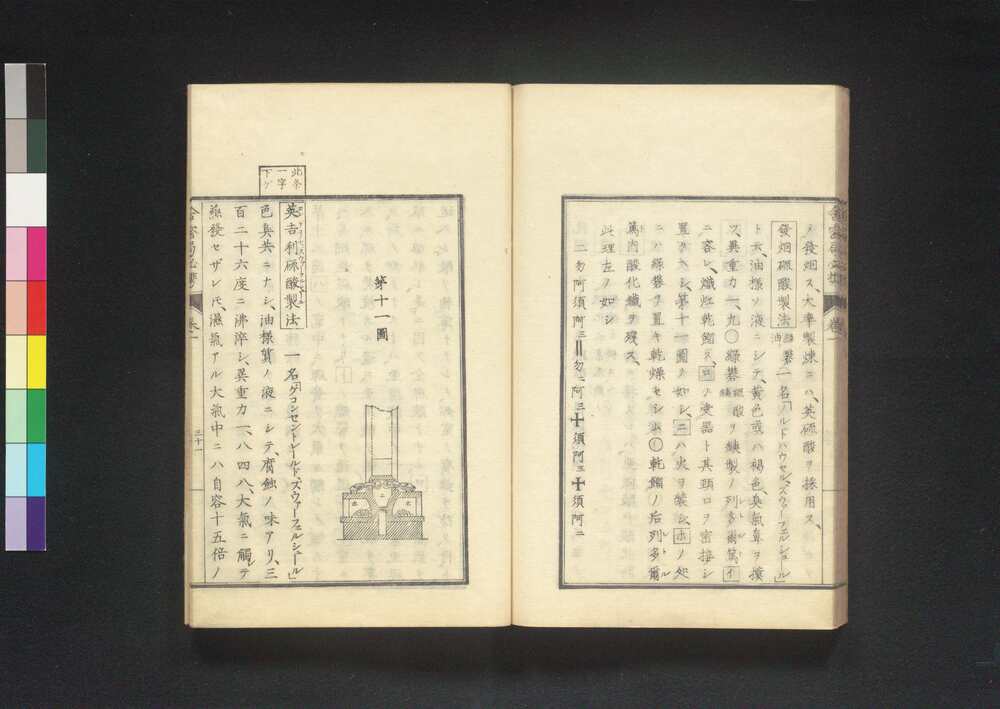 ノ發烟ス、大率製煉ニハ、英硫酸ヲ採用ス、
發烟硫酸製法 一名「ノルドハウセン、ズウァーフェルシュール」
ト云、油様ノ液ニシテ、黄色或ハ褐色、臭氣鼻ヲ撲
ス、異重力一、九〇綠礬 ヲ鍊製ノ列多爾篤、イ
ニ容レ、熾灶乾餾ス、ロノ受器ト其頸口ヲ密接シ
置クヘシ、第十一圖ノ如シ、ニハ火ヲ裝シ、ホノ処
ニハ綠礬ヲ置キ乾燥セシム〇乾餾ノ后列多爾
篤内酸化鐵ヲ殘ス、
此理左ノ如シ
二勿阿須阿三=勿二阿三+須阿三+須阿二
此条
一字
下ゲ
第十一圖
英吉利硫酸製法 一名「ゲコンセントレールド、ズウァーフェルシュール」
色臭共ニナシ、油様質ノ液ニシテ、腐蝕ノ味アリ、三
百二十六度ニ沸淬シ、異重力一、八四八、大氣ニ觸レテ
烝發セザレ𪜈、濕氣アル大氣中ニハ自容十五倍ノ
舎密局必携 卷一
三十一